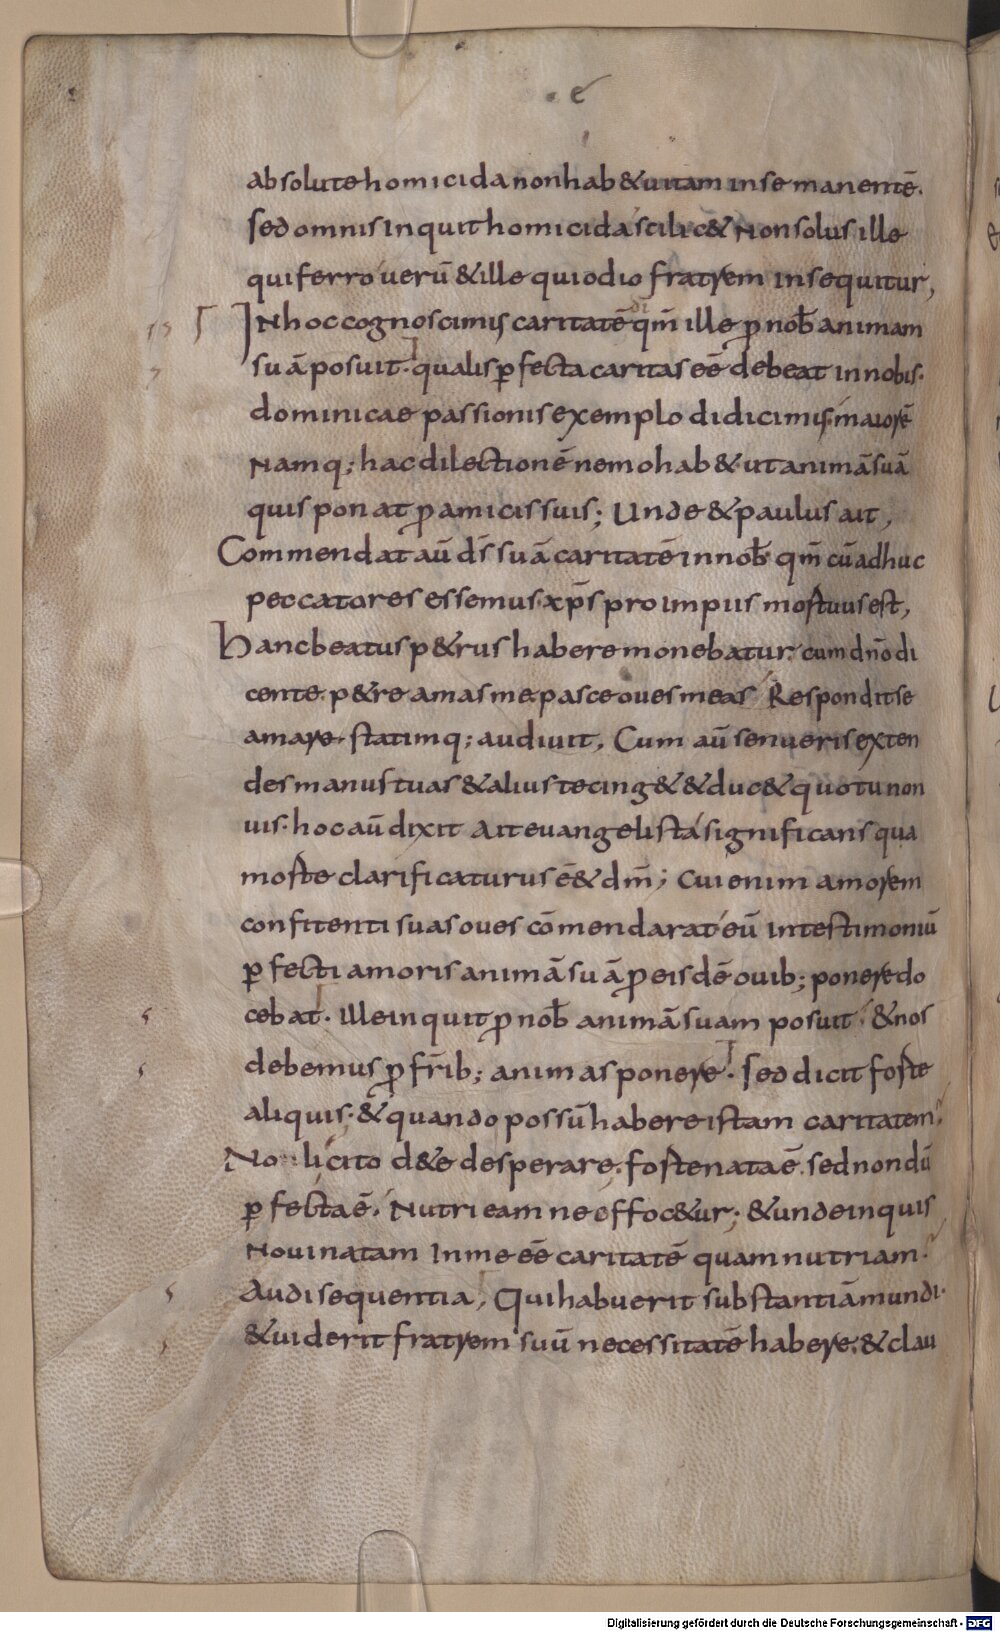 e
absolute homicida non hab& uitam in se manentē.
sed omnis inquit homicida scilic& Non solus ille
qui ferro uerū &ille qui odio fratrem insequitur,
INhoc cognoscimus caritatē qm̄ ille ꝓ nob̄ animam
suā posuit. qualis ꝑfecta caritas eē debeat in nobis.
dominicae passionis exemplo didicimus. maiorē
Namq; hac dilectionē nemo hab& ut animā suā
quis ponat ꝓ amicis suis; Unde & paulus ait,
Commendat aū d̄s suā caritatē in nob̄ qm̄ cū adhuc
peccatores essemus xp̄s pro impiis mortuus est,
Hanc beatus p&rus habere monebatur cum dn̄o di
cente. p&re amas me. pasce oues meas Respondit se
amare. statimq; audiuit. Cum aū senueris exten
des manus tuas & alius te cing& & duc& quo tu non
uis. hoc aū dixit Ait euangelista significans qua
morte clarificaturus ē& dm̄; Cui enim amorem
confitenti suas oues cōmendarat eū in testimoniū
ꝑfecti amoris animā suā ꝓ eisdē ouib; ponere do
cebat. Ille inquit ꝓ nob̄ animā suam posuit & nos
debemus ꝓ fr̄ib; animas ponere. Sed dicit forte
aliquis. & quando possū habere istam caritatem?
No li cito d&e desperare. forte nata ē. sed nondū
ꝑfecta ē. Nutri eam ne effoc&ur; & unde inquis
Noui natam In me eē caritatē quam nutriam?
Audi sequentia, Qui habuerit substantiā mundi.
&uiderit fratrem suū necessitatē habere. & clau
Digitalisierung gefördert durch die Deutsche Forschungsgemeinschaft - DFG